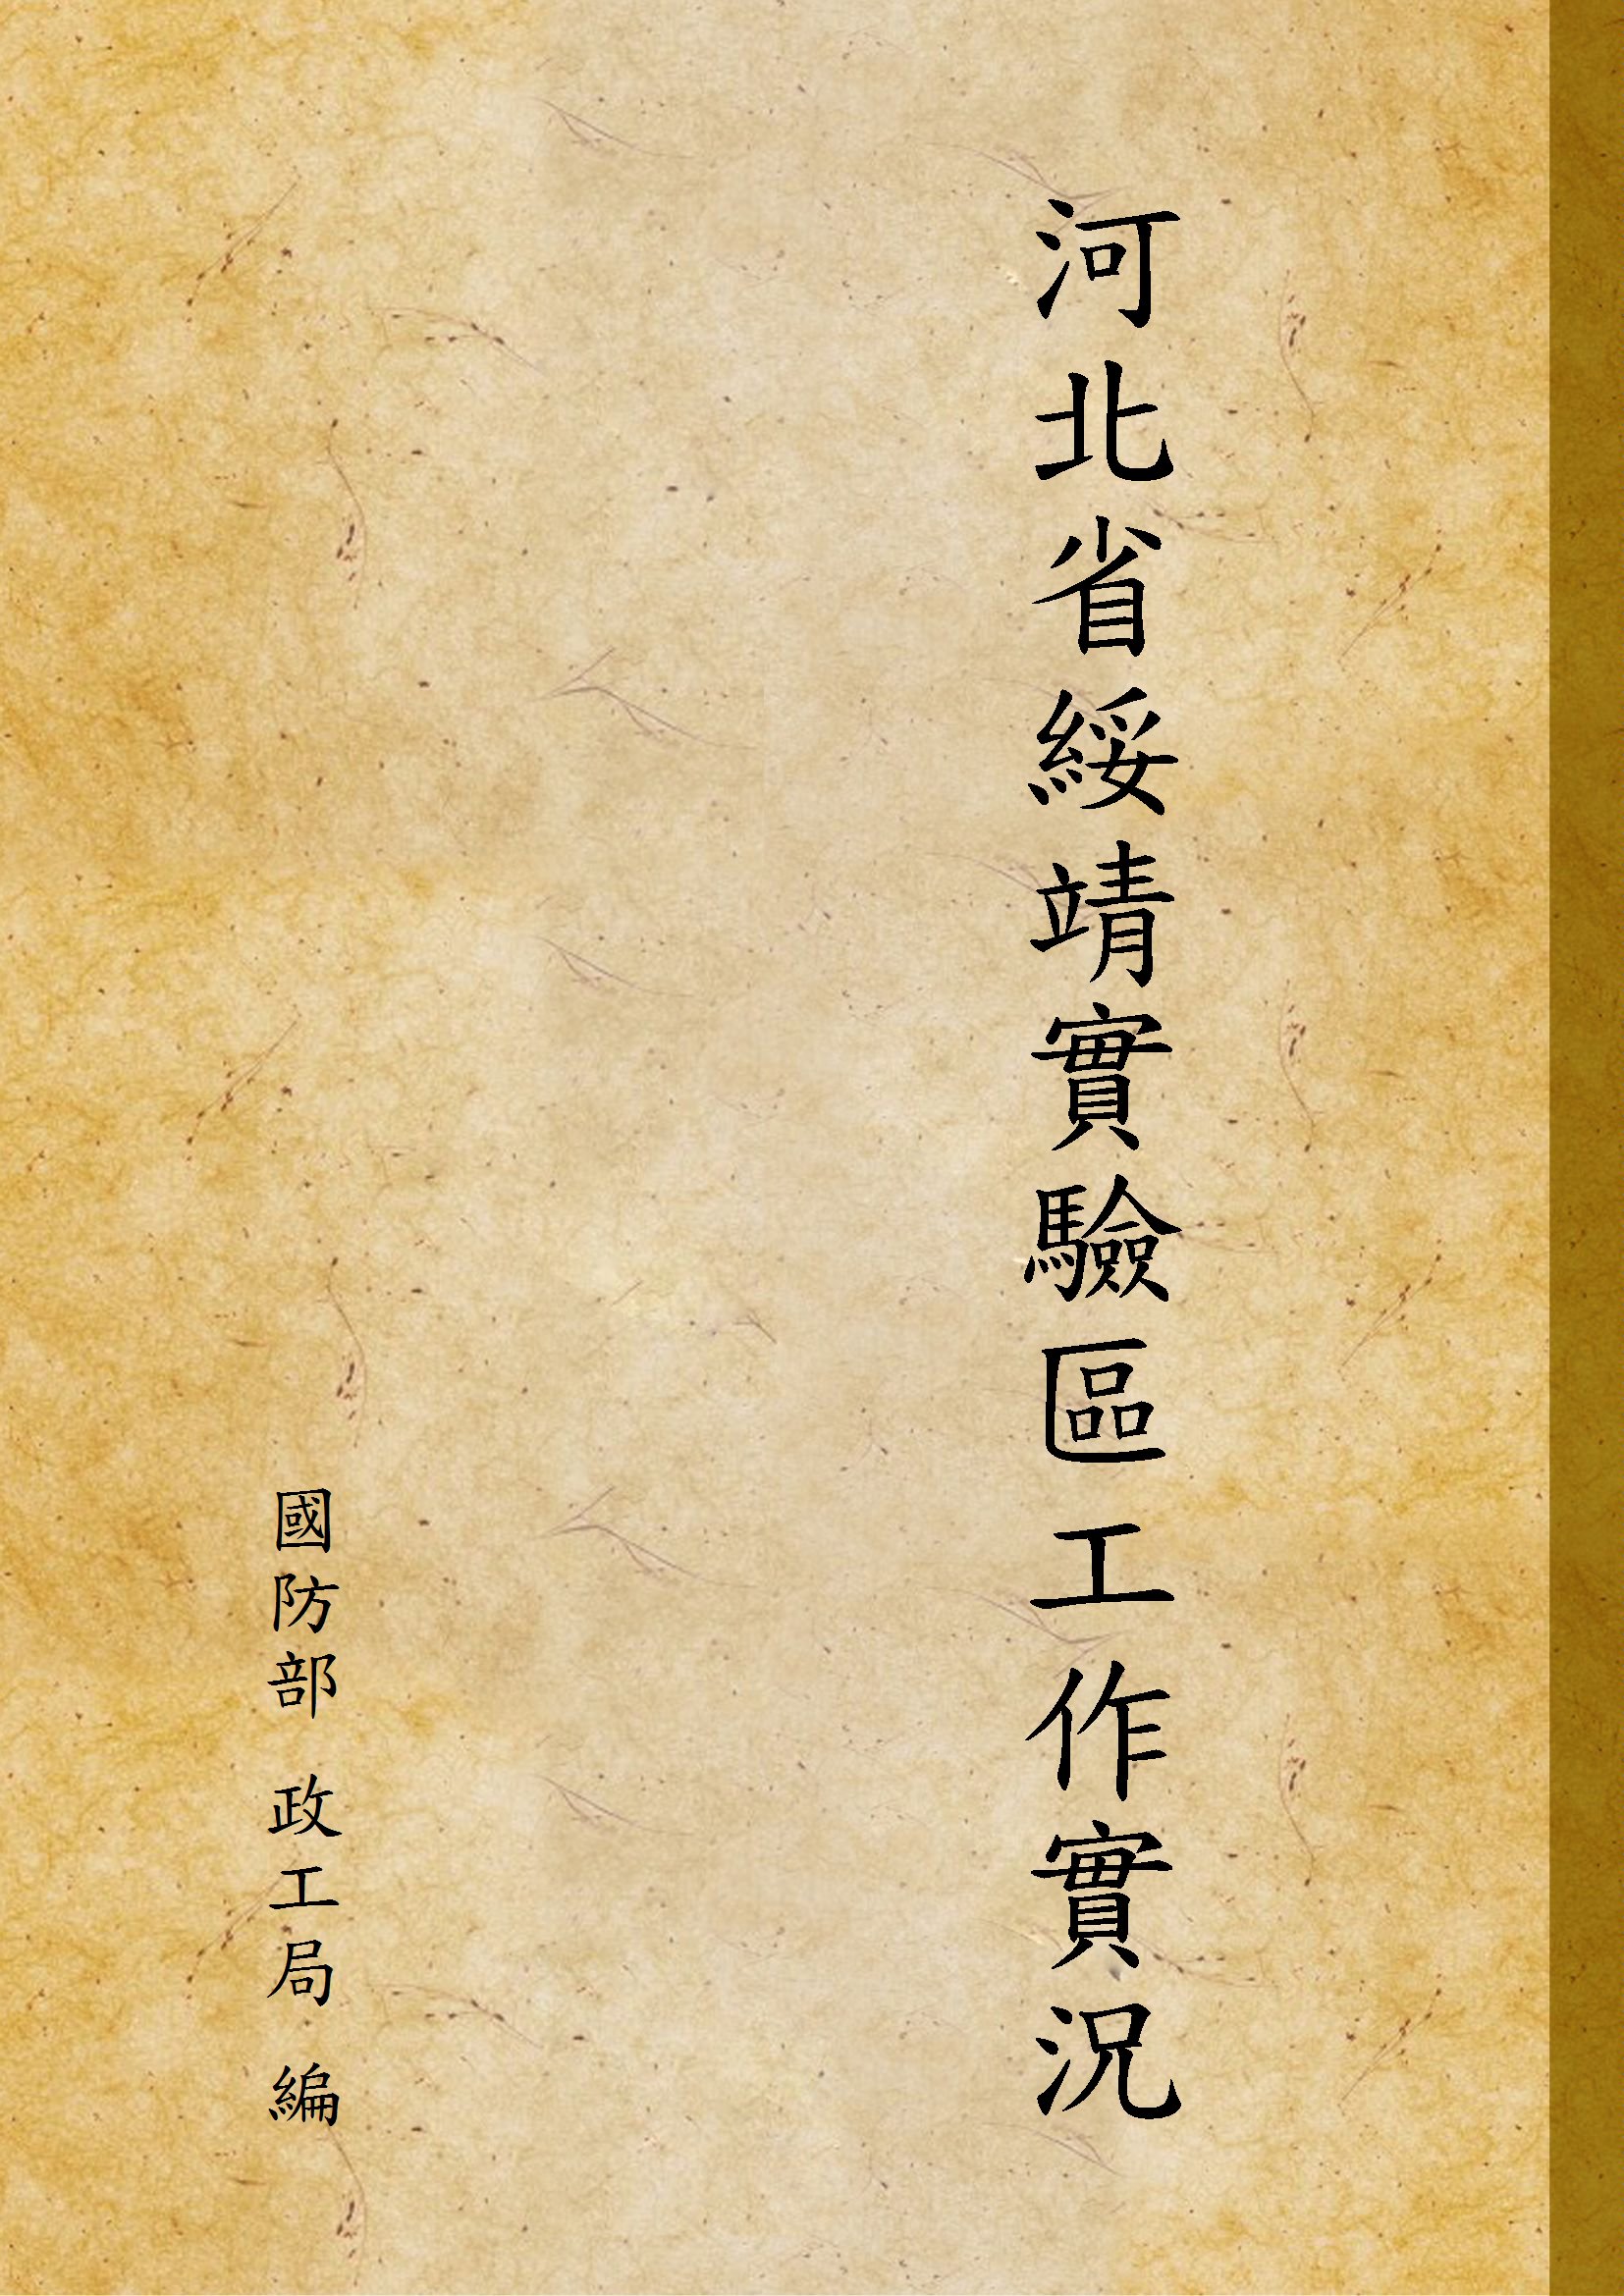 河北省綏靖實驗區工作實況
國防部 政工局 編